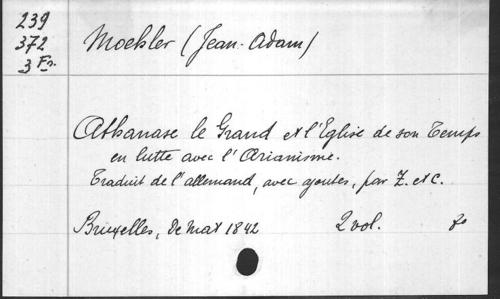 239
372
3 Fr.
Moehler (Jean-Adam)
Athanase le Grand et l'Eglise de son Temps
en lutte avec l'Arianisme.
Traduit de l'allemand, avec ajoutes, par Z. et C.
Bruxelles, De Mat 1842 2 vol.